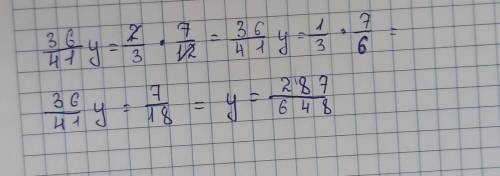 36/41 y = 2/3 · 7/12 = 36/41 y = 1/3 · 7/6 =
36/41 y = 7/18 = y = 287/648